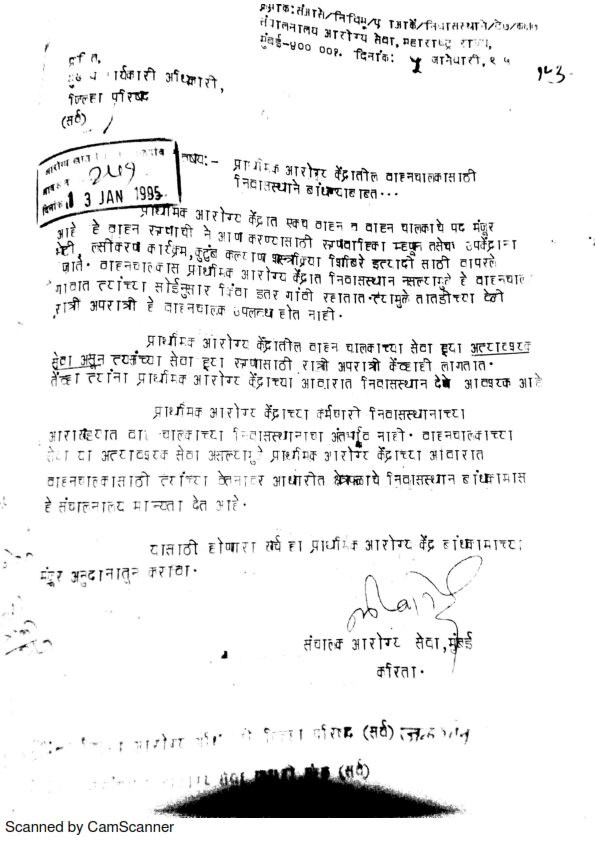 संचालनालय आरोग्य सेवा, महाराष्ट्र राज्य,
मुंबई-४०० ००१. दिनांक: ५ जानेवारी, ९५
१५३
प्रति,
मुख्य कार्यकारी अधिकारी,
जिल्हा परिषद
(सर्व)
13 JAN 1995
विषय:- प्राथमिक आरोग्य केंद्रातील वाहनचालकासाठी
निवासस्थाने बांधण्याबाबत...
प्राथमिक आरोग्य केंद्रात एकच वाहन व वाहन चालकाचे पद मंजूर
आहे हे वाहन रुग्णांची ने आण करण्यासाठी रुग्णवाहिका म्हणून तसेच उपकेंद्राना
भेटी, लसीकरण कार्यक्रम, कुटुंब कल्याण शस्त्रक्रिया शिबिरे इत्यादी साठी वापरले
जाते. वाहनचालकास प्राथमिक आरोग्य केंद्रात निवासस्थान नसल्यामुळे हे वाहनचालक
गावात त्यांच्या सोईनुसार किंवा इतर गांवी रहातात. त्यामुळे तातडीच्या वेळी
रात्री अपरात्री हे वाहनचालक उपलब्ध होत नाही.
प्राथमिक आरोग्य केंद्रातील वाहन चालकाच्या सेवा ह्या अत्यावश्यक
सेवा असून त्यांच्या सेवा ह्या रुग्णासाठी रात्री अपरात्री केंव्हाही लागतात.
तेंव्हा त्यांना प्राथमिक आरोग्य केंद्राच्या आवारात निवासस्थान देणे आवश्यक आहे
प्राथमिक आरोग्य केंद्राच्या कर्मचारी निवासस्थानाच्या
आराखड्यात वाहनचालकाच्या निवासस्थानाचा अंतर्भाव नाही. वाहनचालकाच्या
सेवा या अत्यावश्यक सेवा असल्यामुळे प्राथमिक आरोग्य केंद्राच्या आवारात
वाहनचालकासाठी त्यांच्या वेतनावर आधारीत क्षेत्रफळाचे निवासस्थान बांधकामास
हे संचालनालय मान्यता देत आहे.
यासाठी होणारा खर्च हा प्राथमिक आरोग्य केंद्र बांधकामाच्या
मंजूर अनुदानातुन करावा.
संचालक आरोग्य सेवा, मुंबई
करिता.
आरोग्य जिल्हा परिषद (सर्व) जळगांव
(सर्व)
Scanned by CamScanner